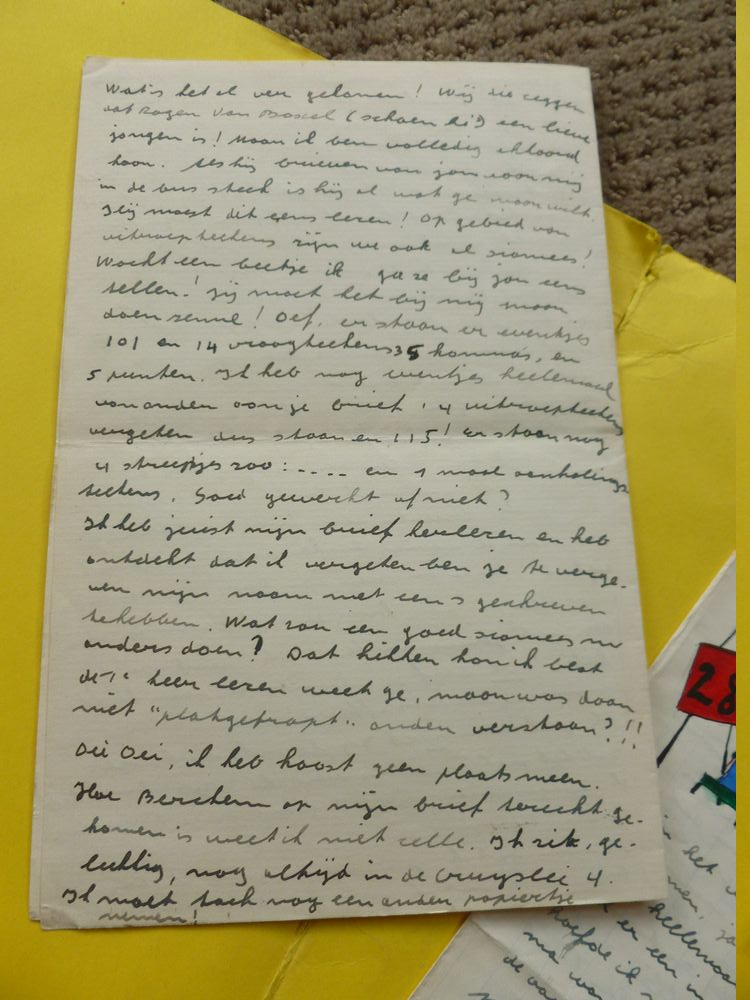 Wat is het al ver gekomen! Wij die zeggen
dat van Boxel (schoen hi) een lieve
jongen is! Maar ik ben volledig akkoord
hoor. Als hij brieven van jou voor mij
in de bus steek is hij al wat ge maar wilt.
Jij moest dit eens lezen! Op gebied van
uitroepteekens zijn we ook al siamees!
Wacht een beetje ik ga ze bij jou eens
tellen! Jij moet het bij mij maar
doen zenne! Oef, er staan er eventjes
101 en 14 vraagteekens 35 kommas, en
5 punten. Ik heb nog eventjes heelemaal
vanonder aan je brief 14 uitroepteekens
vergeten dus staan en 115! Er staan nog
4 streepjes zoo: .... en 1 maal aanhalings
teekens. Goed gewerkt of niet?
Ik heb juist mijn brief herlezen en heb
ontdekt dat ik vergeten ben je te verge-
ven mijn naam met een s geschreven
te hebben. Wat zou een goed siamees nu
anders doen? Dat hikken kon ik best
de 1e keer lezen weet ge, maar was daar
niet "platgetrapt" onder verstaan?!!!
Oei Oei, ik heb haast geen plaats meer.
Hoe Berchem op mijn brief terecht ge-
komen is weet ik niet zelle. Ik zit, ge-
lukkig, nog altijd in de Cruyslei 4.
Ik moet toch nog een ander papiertje
nemen!
28
in het
er een in
heelemaa
hoefde ik